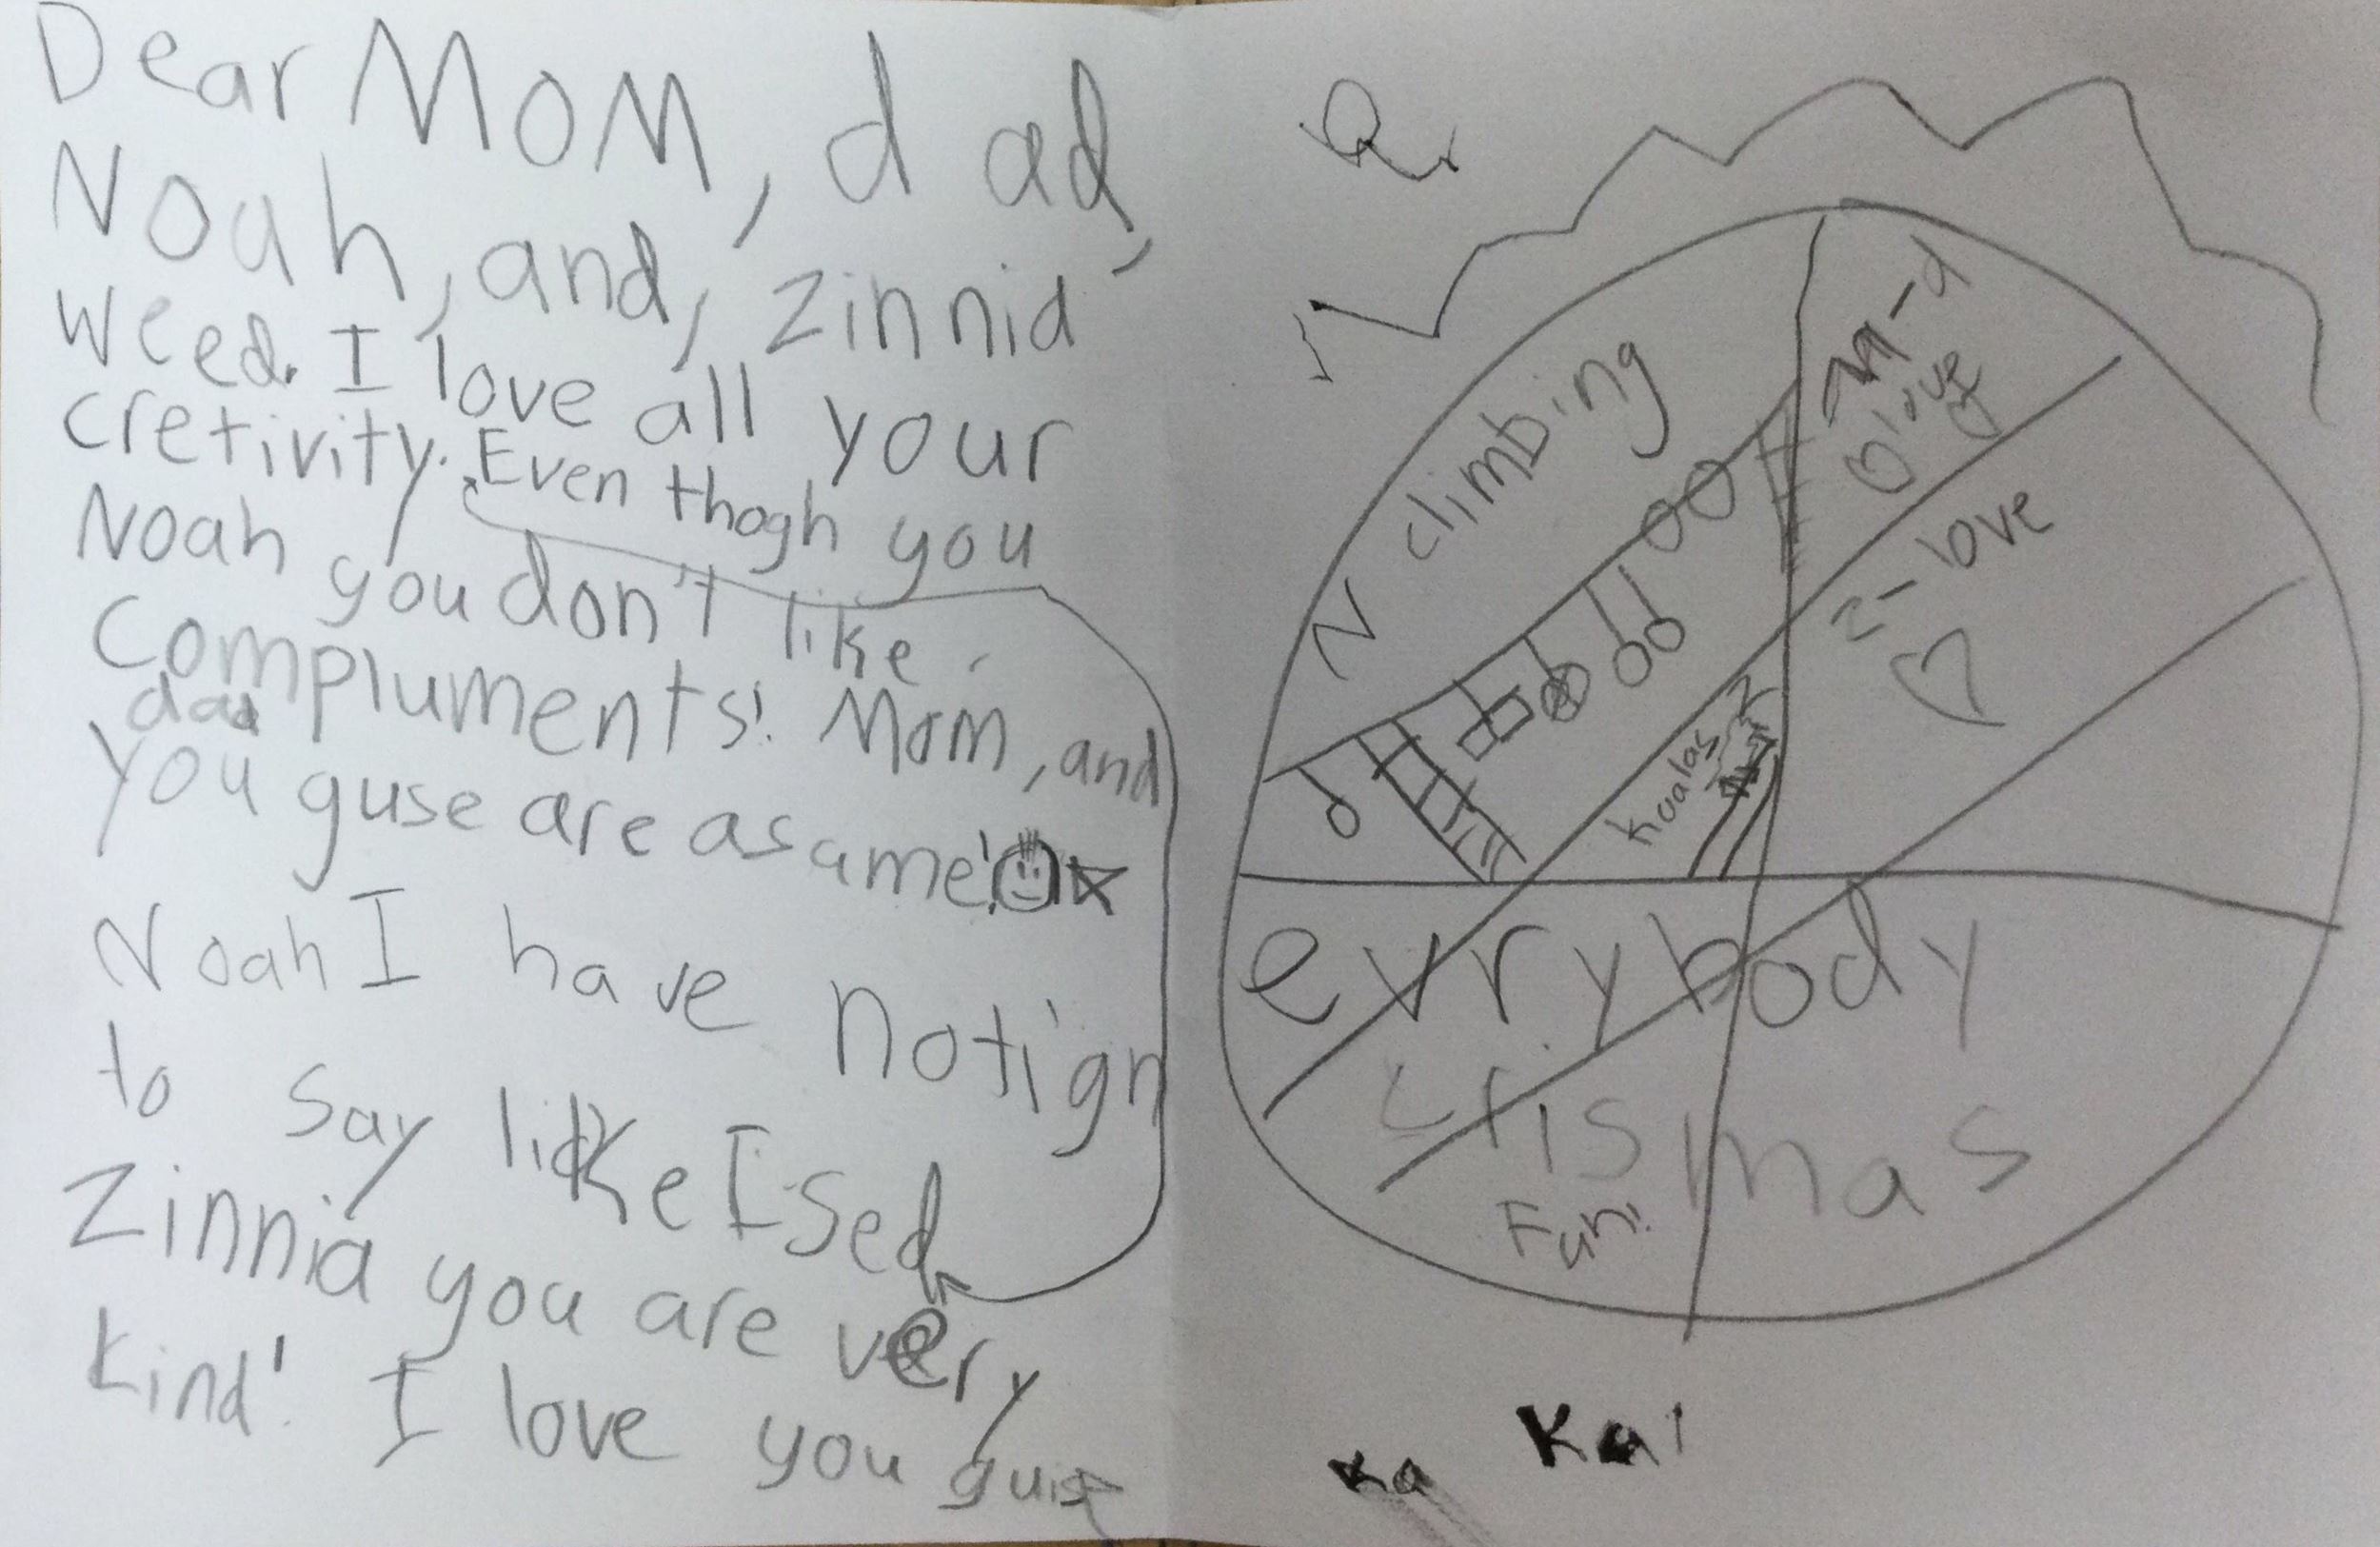 Dear MOM, dad,
Noah, and, Zinnia
weed. I love all your
cretivity. Even thogh you
Noah you don't like
Compluments! Mom, and
dad
you guse are asame!
Noah I have notign
to say like I sed
Zinnia you are very
kind! I love you guise
N climbing
m-d
Olive
Z-love
kualas
evrybody
crismas
Fun!
Ka Kai